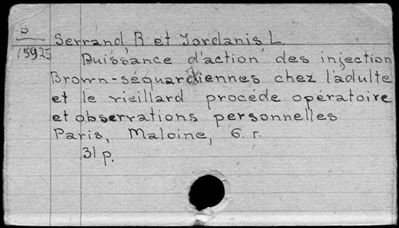 5
15925
Serrand, R et Jordanis L
Puissance d'action des injection
Brown-séquardiennes chez l'adulte
et le vieillard procéde opératoire
et observations personnelles
Paris, Maloine, 6. r.
31 p.